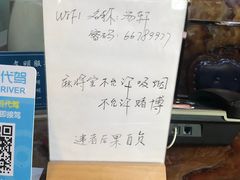 WiFi 名称: 汤轩
密码: 66789977
麻将室不允许吸烟
不允许赌博
违者后果自负
代驾
DRIVER